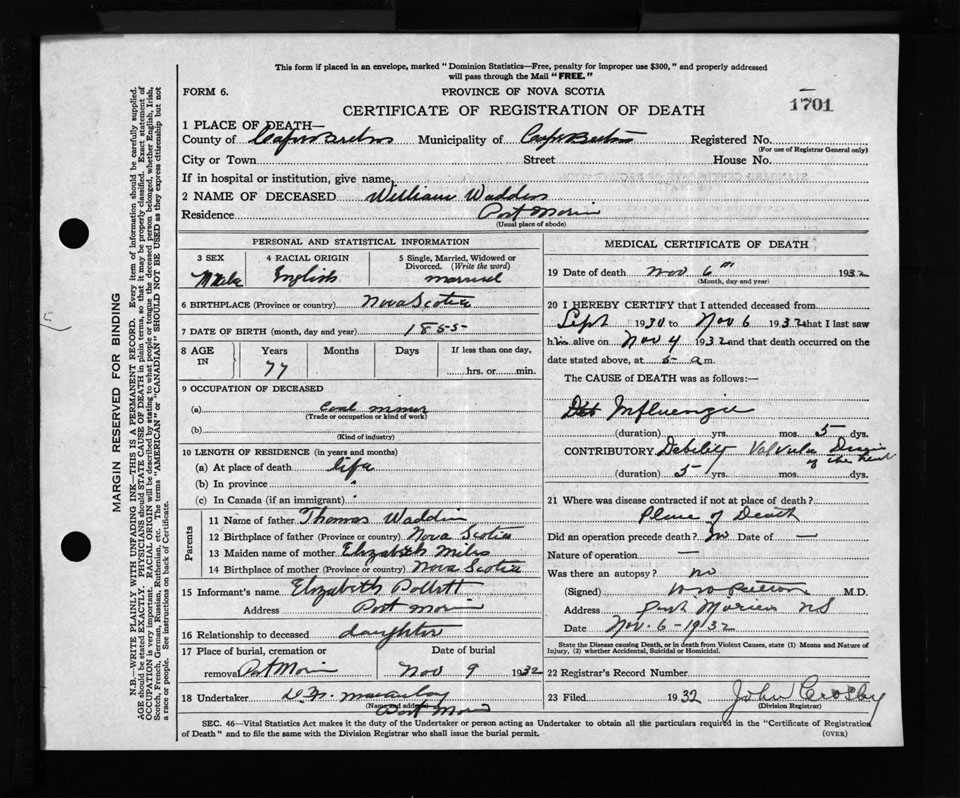 This form if placed in an envelope, marked "Dominion Statistics—Free, penalty for improper use $300," and properly addressed
will pass through the Mail "FREE."
FORM 6.
PROVINCE OF NOVA SCOTIA
CERTIFICATE OF REGISTRATION OF DEATH
1701
1 PLACE OF DEATH—
County of Cape Breton Municipality of Cape Breton Registered No.
(For use of Registrar General only)
City or Town Street House No.
If in hospital or institution, give name
2 NAME OF DECEASED William Wadden
Residence Port Morien
(Usual place of abode)
PERSONAL AND STATISTICAL INFORMATION
3 SEX 4 RACIAL ORIGIN 5 Single, Married, Widowed or
Divorced. (Write the word)
Male English married
6 BIRTHPLACE (Province or country) Nova Scotia
7 DATE OF BIRTH (month, day and year) 1855
8 AGE IN Years Months Days If less than one day,
77 hrs. or min.
9 OCCUPATION OF DECEASED
(a) Coal miner
(Trade or occupation or kind of work)
(b)
(Kind of industry)
10 LENGTH OF RESIDENCE (in years and months)
(a) At place of death life
(b) In province "
(c) In Canada (if an immigrant) "
Parents
11 Name of father Thomas Waddin
12 Birthplace of father (Province or country) Nova Scotia
13 Maiden name of mother Elizabeth Miles
14 Birthplace of mother (Province or country) Nova Scotia
15 Informant's name Elizabeth Pollett
Address Port Morien
16 Relationship to deceased daughter
17 Place of burial, cremation or Date of burial
removal Port Morien Nov 9 1932
18 Undertaker
(Name and address)
Port Morien
MEDICAL CERTIFICATE OF DEATH
19 Date of death Nov 6th 1932
(Month, day and year)
20 I HEREBY CERTIFY that I attended deceased from
Sept 1930 to Nov 6 1932 that I last saw
him alive on Nov 4 1932 and that death occurred on the
date stated above, at 5 a m.
The CAUSE of DEATH was as follows:—
Influenza
(duration) yrs. mos. 5 dys.
CONTRIBUTORY. Debility Valvular Disease
of the heart
(duration) 5 yrs. mos. dys.
21 Where was disease contracted if not at place of death?
Place of Death
Did an operation precede death? no Date of —
Nature of operation —
Was there an autopsy? no
(Signed) M.D.
Address Port Morien NS
Date Nov. 6-1932
State the Disease causing Death, or in death from Violent Causes, state (1) Means and Nature of
Injury, (2) whether Accidental, Suicidal or Homicidal.
22 Registrar's Record Number
23 Filed 1932 John Crosby
(Division Registrar)
SEC. 46—Vital Statistics Act makes it the duty of the Undertaker or person acting as Undertaker to obtain all the particulars required in the "Certificate of Registration
of Death" and to file the same with the Division Registrar who shall issue the burial permit.
(OVER)
MARGIN RESERVED FOR BINDING
N.B.—WRITE PLAINLY WITH UNFADING INK—THIS IS A PERMANENT RECORD. Every item of information should be carefully supplied.
AGE should be stated EXACTLY. PHYSICIANS should STATE CAUSE OF DEATH in plain terms, so that it may be properly classified. Exact statement of
OCCUPATION is very important. RACIAL ORIGIN will be described by stating to what people or tongue the deceased person belonged, whether English, Irish,
Scotch, French, German, Russian, Ruthenian, etc. The terms "AMERICAN" or "CANADIAN" SHOULD NOT BE USED as they express citizenship but not
a race or people. See instructions on back of Certificate.